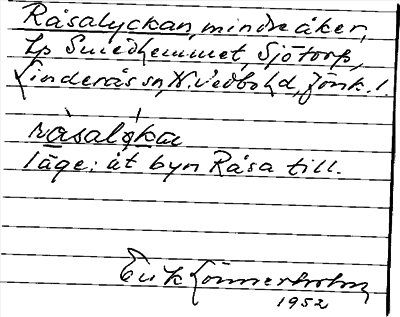 Råsalyckan, mindre åker,
Lp Smedhemmet, Sjötorp,
Linderås sn, N. Vedbo hd, Jönk. l.
råsal kan
läge: åt byn Råsa till.
Erik Lönnerholm
1952